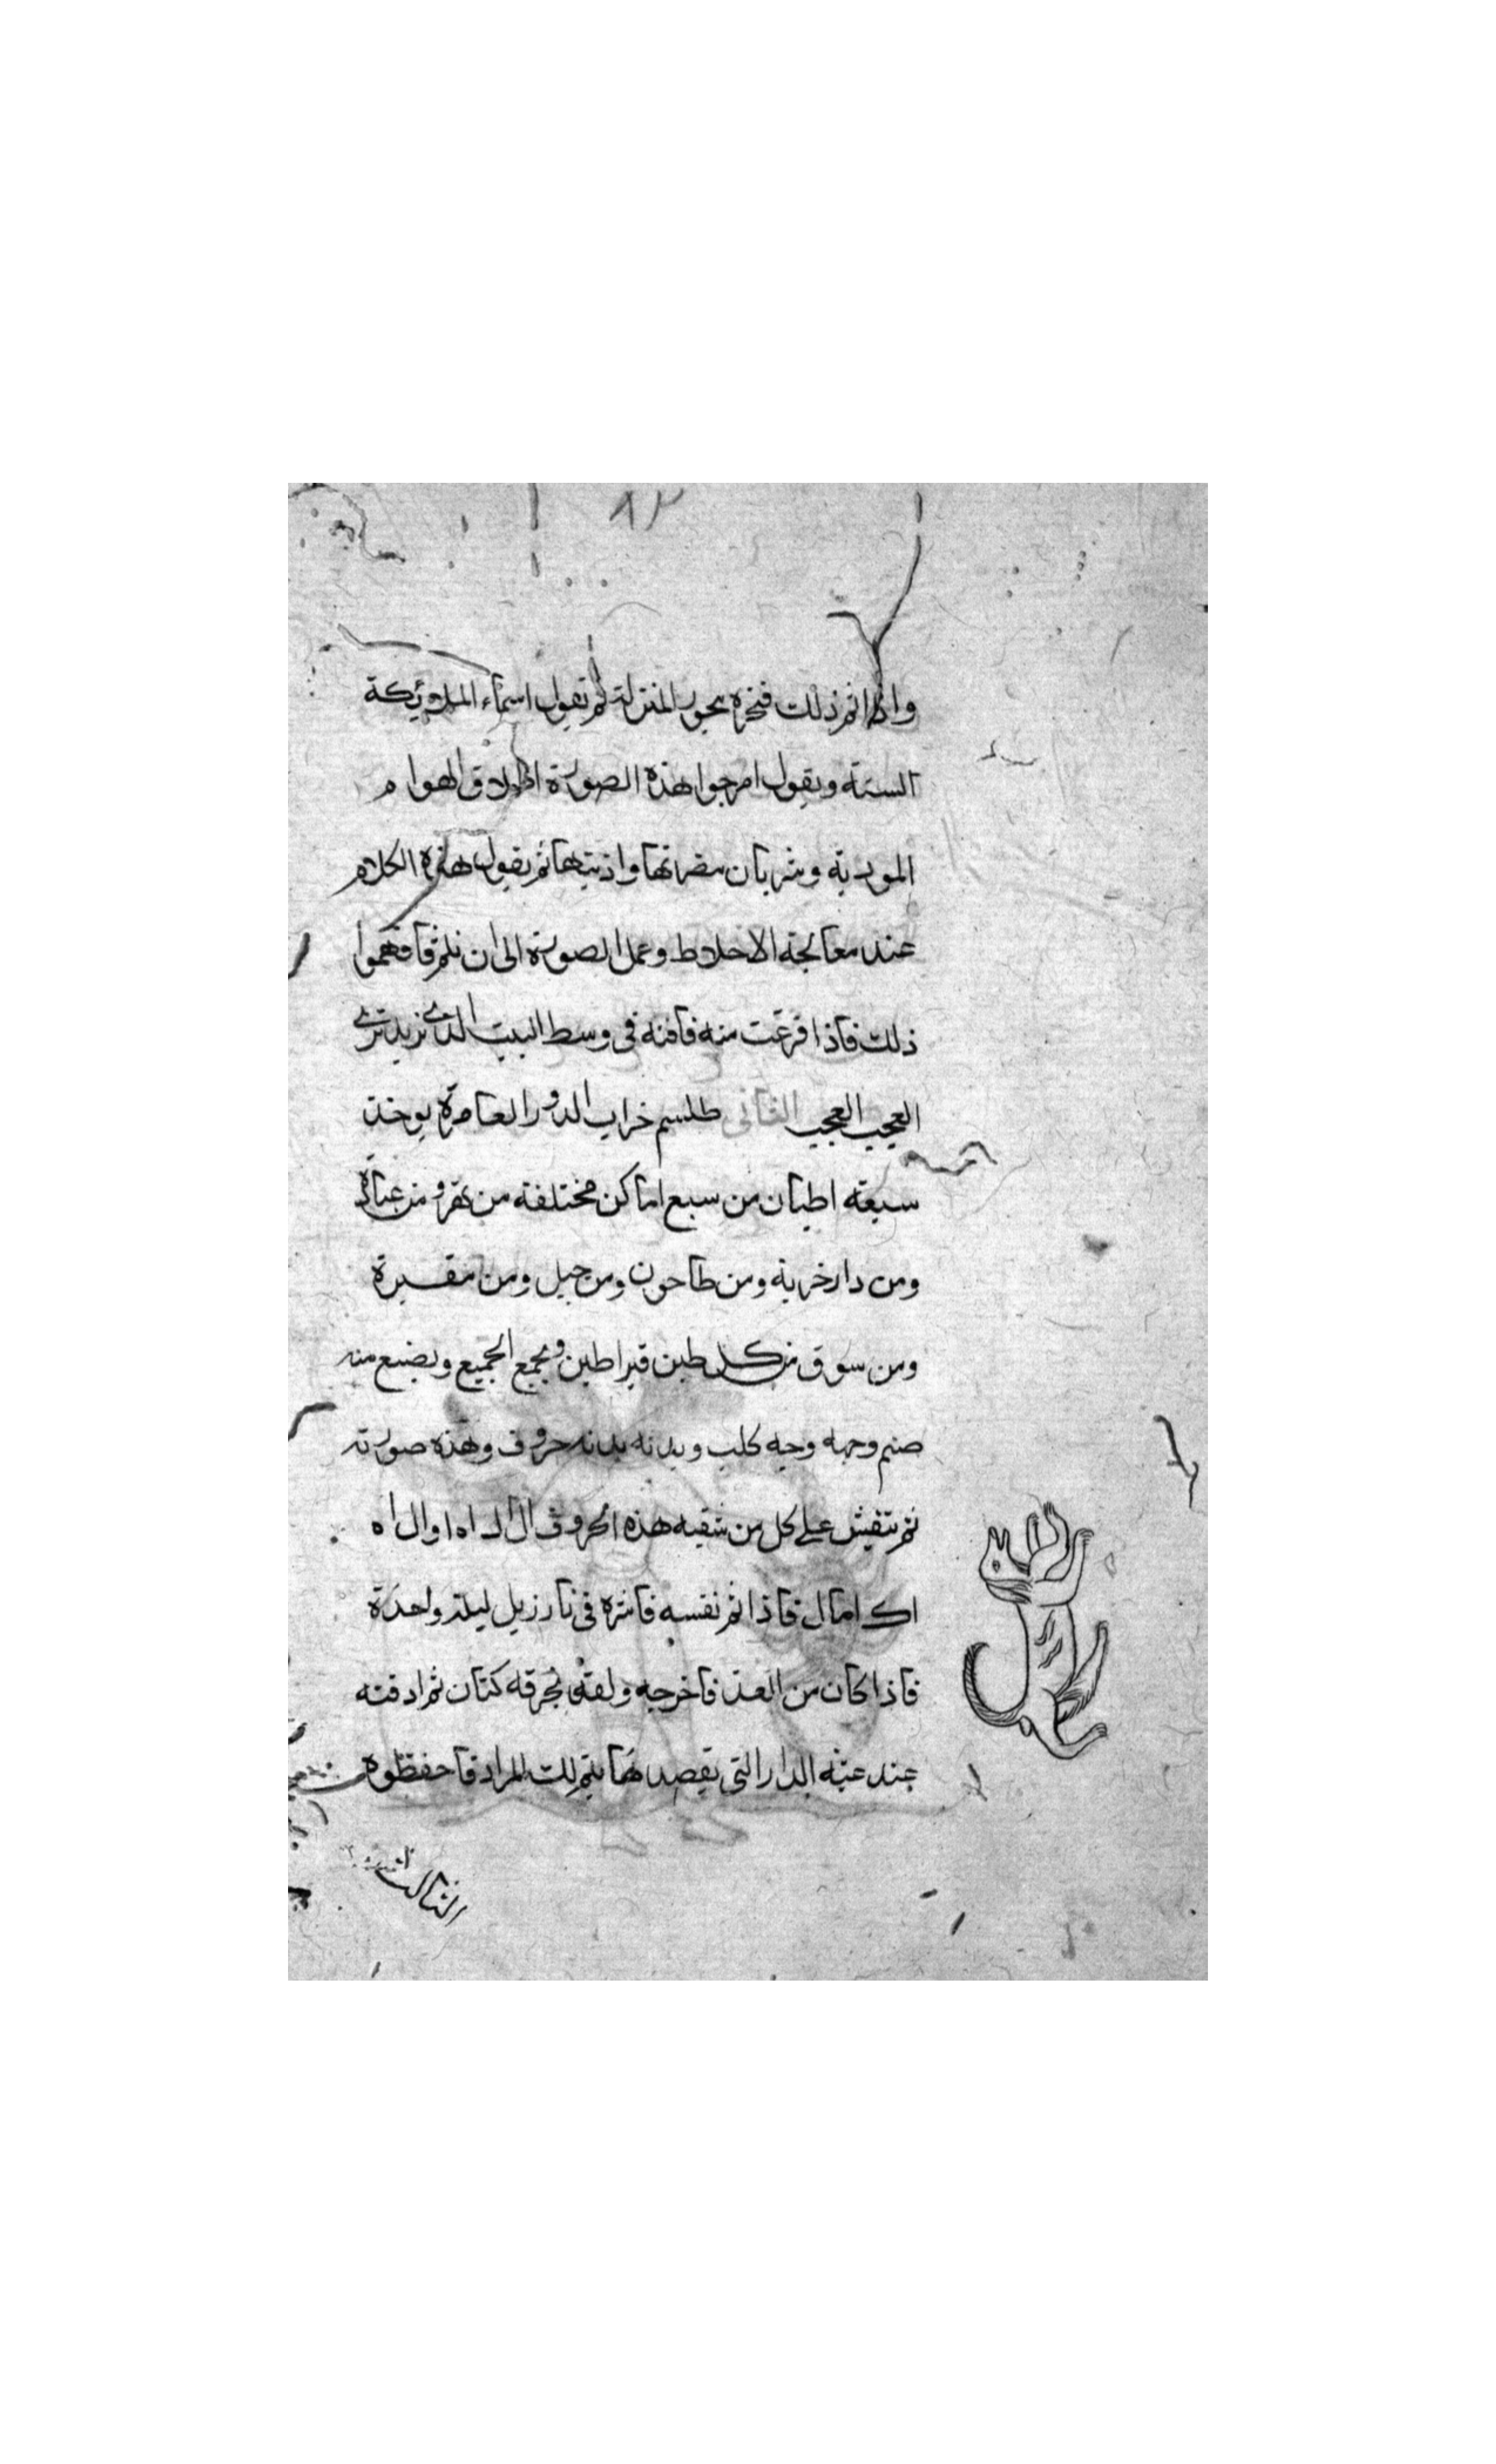 ٨٣
واذا تم ذلك فبخره ببخور المنزلة ثم تقول اسماء الملائكة
الستة ويقول امزجوا هذه الصورة اخلاق الهوام
الموذية وشربان مضراتها واذيتها ثم يقول هذه الكلام
عند معالجة الاخلاط وعمل الصورة الى ان تلتم فافهموا
ذلك فاذا فرغت منه فادفنه فى وسط البيت الذى تريد ترى
العجيب العجيب الثانى طلسم خراب الدور العامرة يوخذ
سبعة اطيان من سبع اماكن مختلفة من نقر ومن عبادة
ومن دار خربة ومن طاحون ومن جبل ومن مقبرة
ومن سوق من كل طين قيراطين ويجمع الجميع ويصنع منه
صنم وجهه وجه كلب وبدنه بدنه خروف وهذه صورته
ثم تنقش على كل من شقيه هذه الحروف ال ال اه ا وال اه
اك امال فاذا تم نقشه فاشوه فى نار زبل ليلة واحدة
فاذا كان من الغد فاخرجه ولفه بخرقة كتان ثم ادفنه
عند عتبة الدار التى تقصدها يتم لك المراد فاحفظوه
الثالث